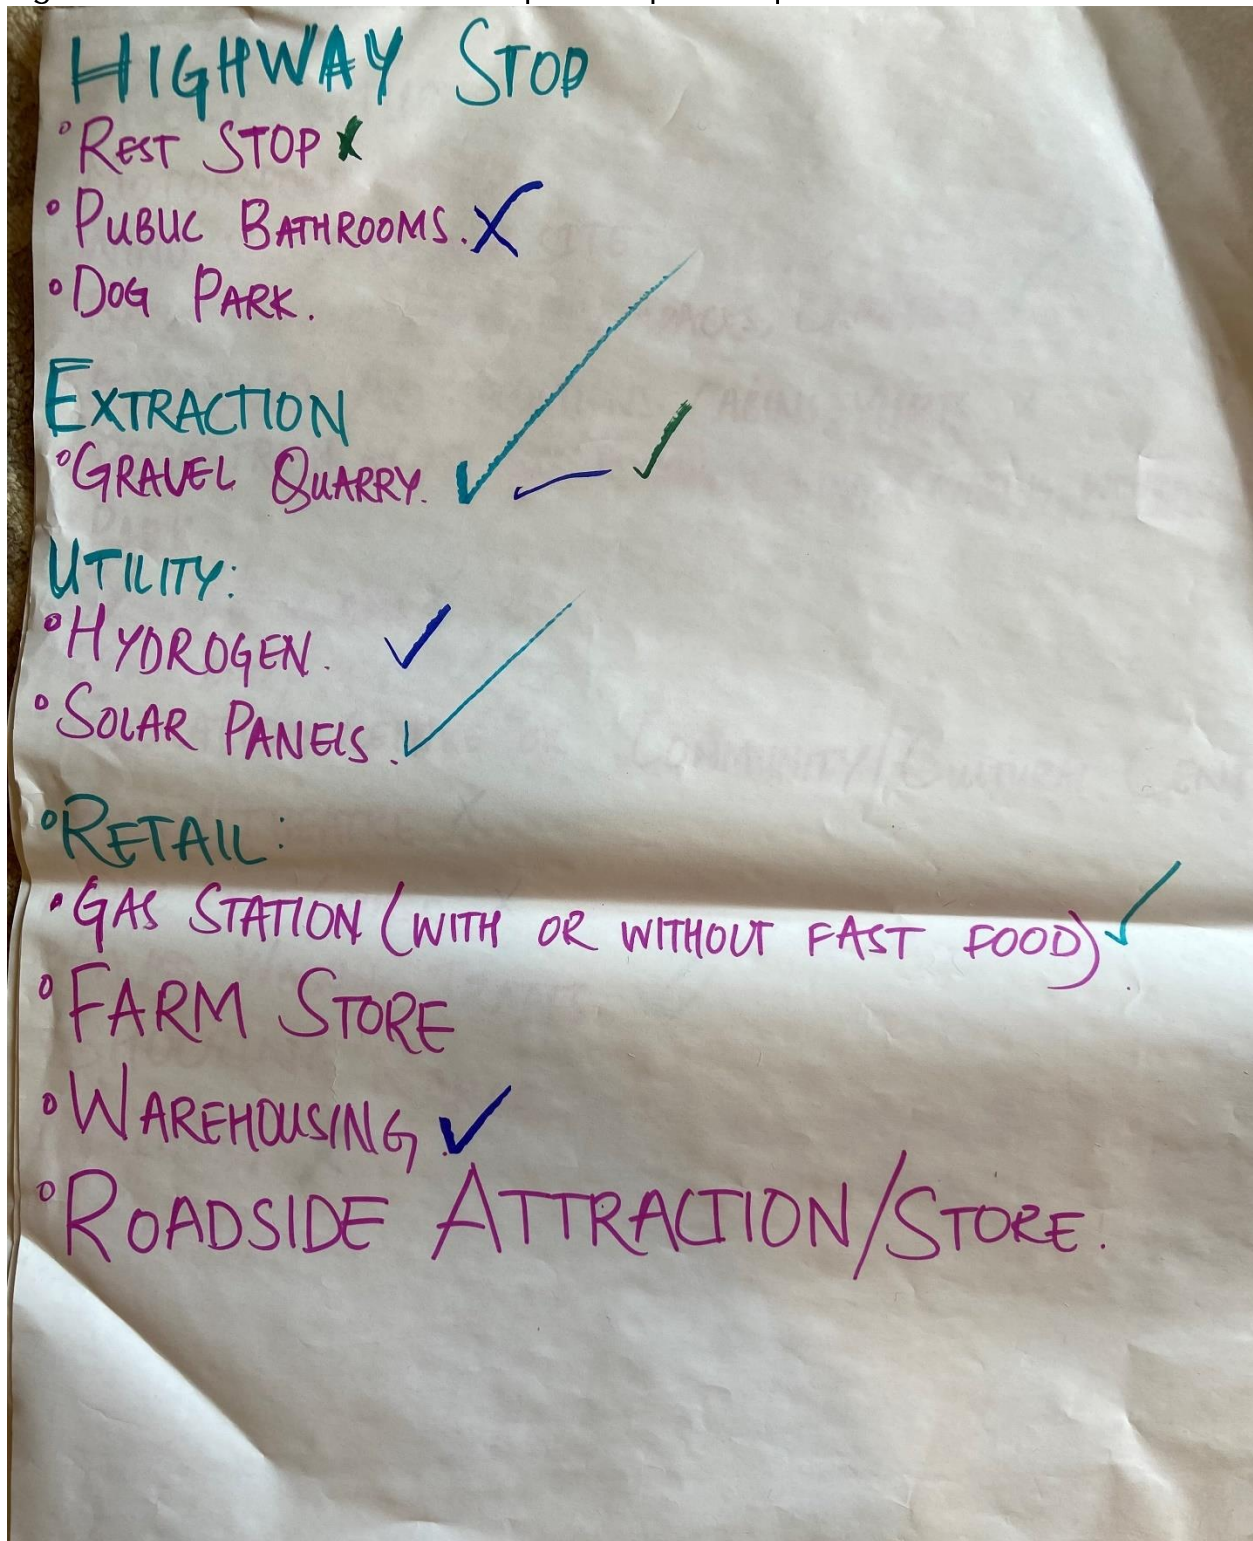 HIGHWAY STOP
° REST STOP X
° PUBLIC BATHROOMS. X
° DOG PARK.
EXTRACTION
° GRAVEL QUARRY. ✓ ✓ ✓
UTILITY:
° HYDROGEN. ✓
° SOLAR PANELS. ✓
° RETAIL:
• GAS STATION (WITH OR WITHOUT FAST FOOD). ✓
° FARM STORE
° WAREHOUSING. ✓
° ROADSIDE ATTRACTION/STORE.